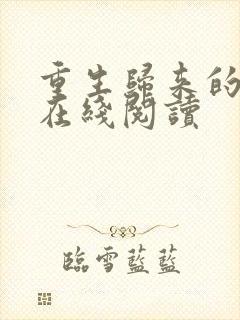 重生歸来的
在綫閱讀
臨雪藍藍